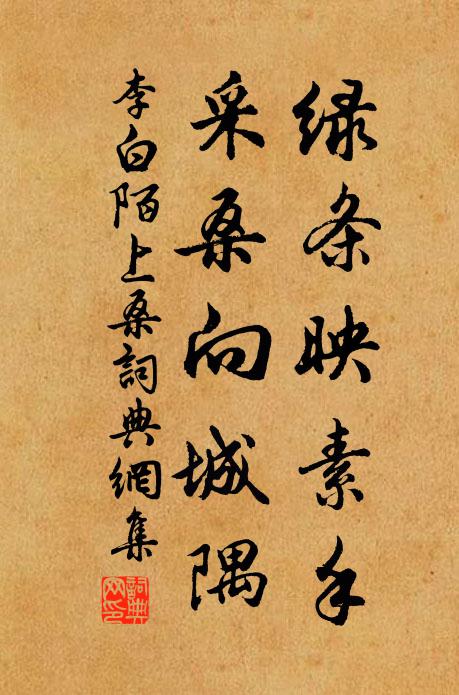 绿条映素手
采桑向城隅
李白陌上桑詞典網集
詞典网印